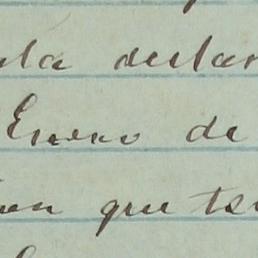 la declar
Enero de
que ten